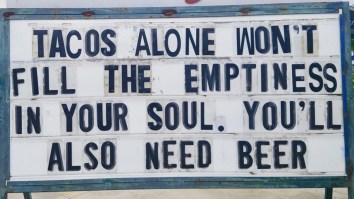 TACOS ALONE WON'T
FILL THE EMPTINESS
IN YOUR SOUL. YOU'LL
ALSO NEED BEER